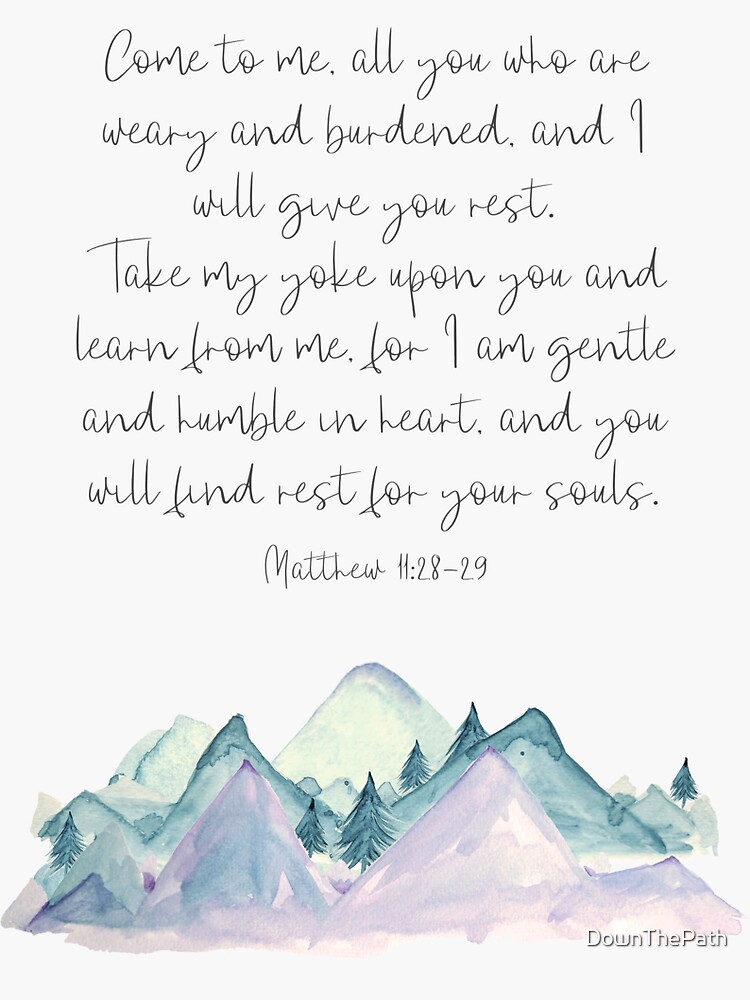 Come to me, all you who are
weary and burdened, and I
will give you rest.
Take my yoke upon you and
learn from me, for I am gentle
and humble in heart, and you
will find rest for your souls.
Matthew 11:28–29
DownThePath